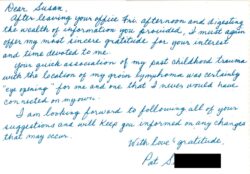 Dear Susan,
After leaving your office Fri. afternoon and digesting
the wealth of information you provided, I must again
offer my most sincere gratitude for your interest
and time devoted to me.
Your quick association of my past childhood trauma
with the location of my groin lymphoma was certainly
"eye opening" for me and one that I never would have
connected on my own.
I am looking forward to following all of your
suggestions and will keep you informed on any changes
that may occur.
With love & gratitude,
Pat S